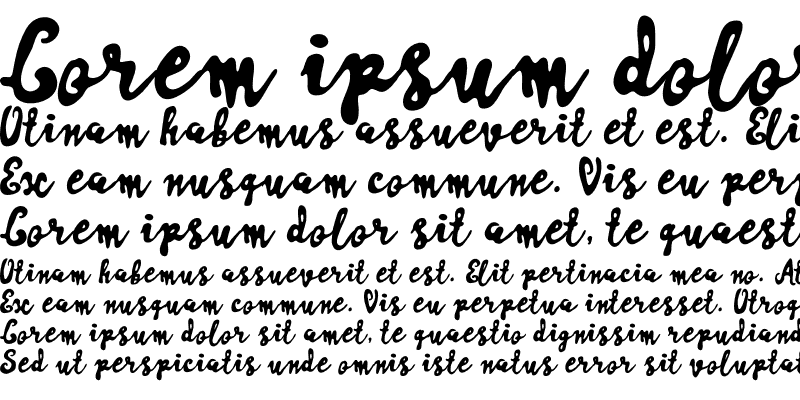 Lorem ipsum dolor
Otinam habemus assueverit et est. Eli
Ex eam nusquam commune. Vis eu perp
Lorem ipsum dolor sit amet, te quaest
Otinam habemus assueverit et est. Elit pertinacia mea no. At
Ex eam nusquam commune. Vis eu perpetua interesset. Utroq
Lorem ipsum dolor sit amet, te quaestio dignissim repudiand
Sed ut perspiciatis unde omnis iste natus error sit voluptat